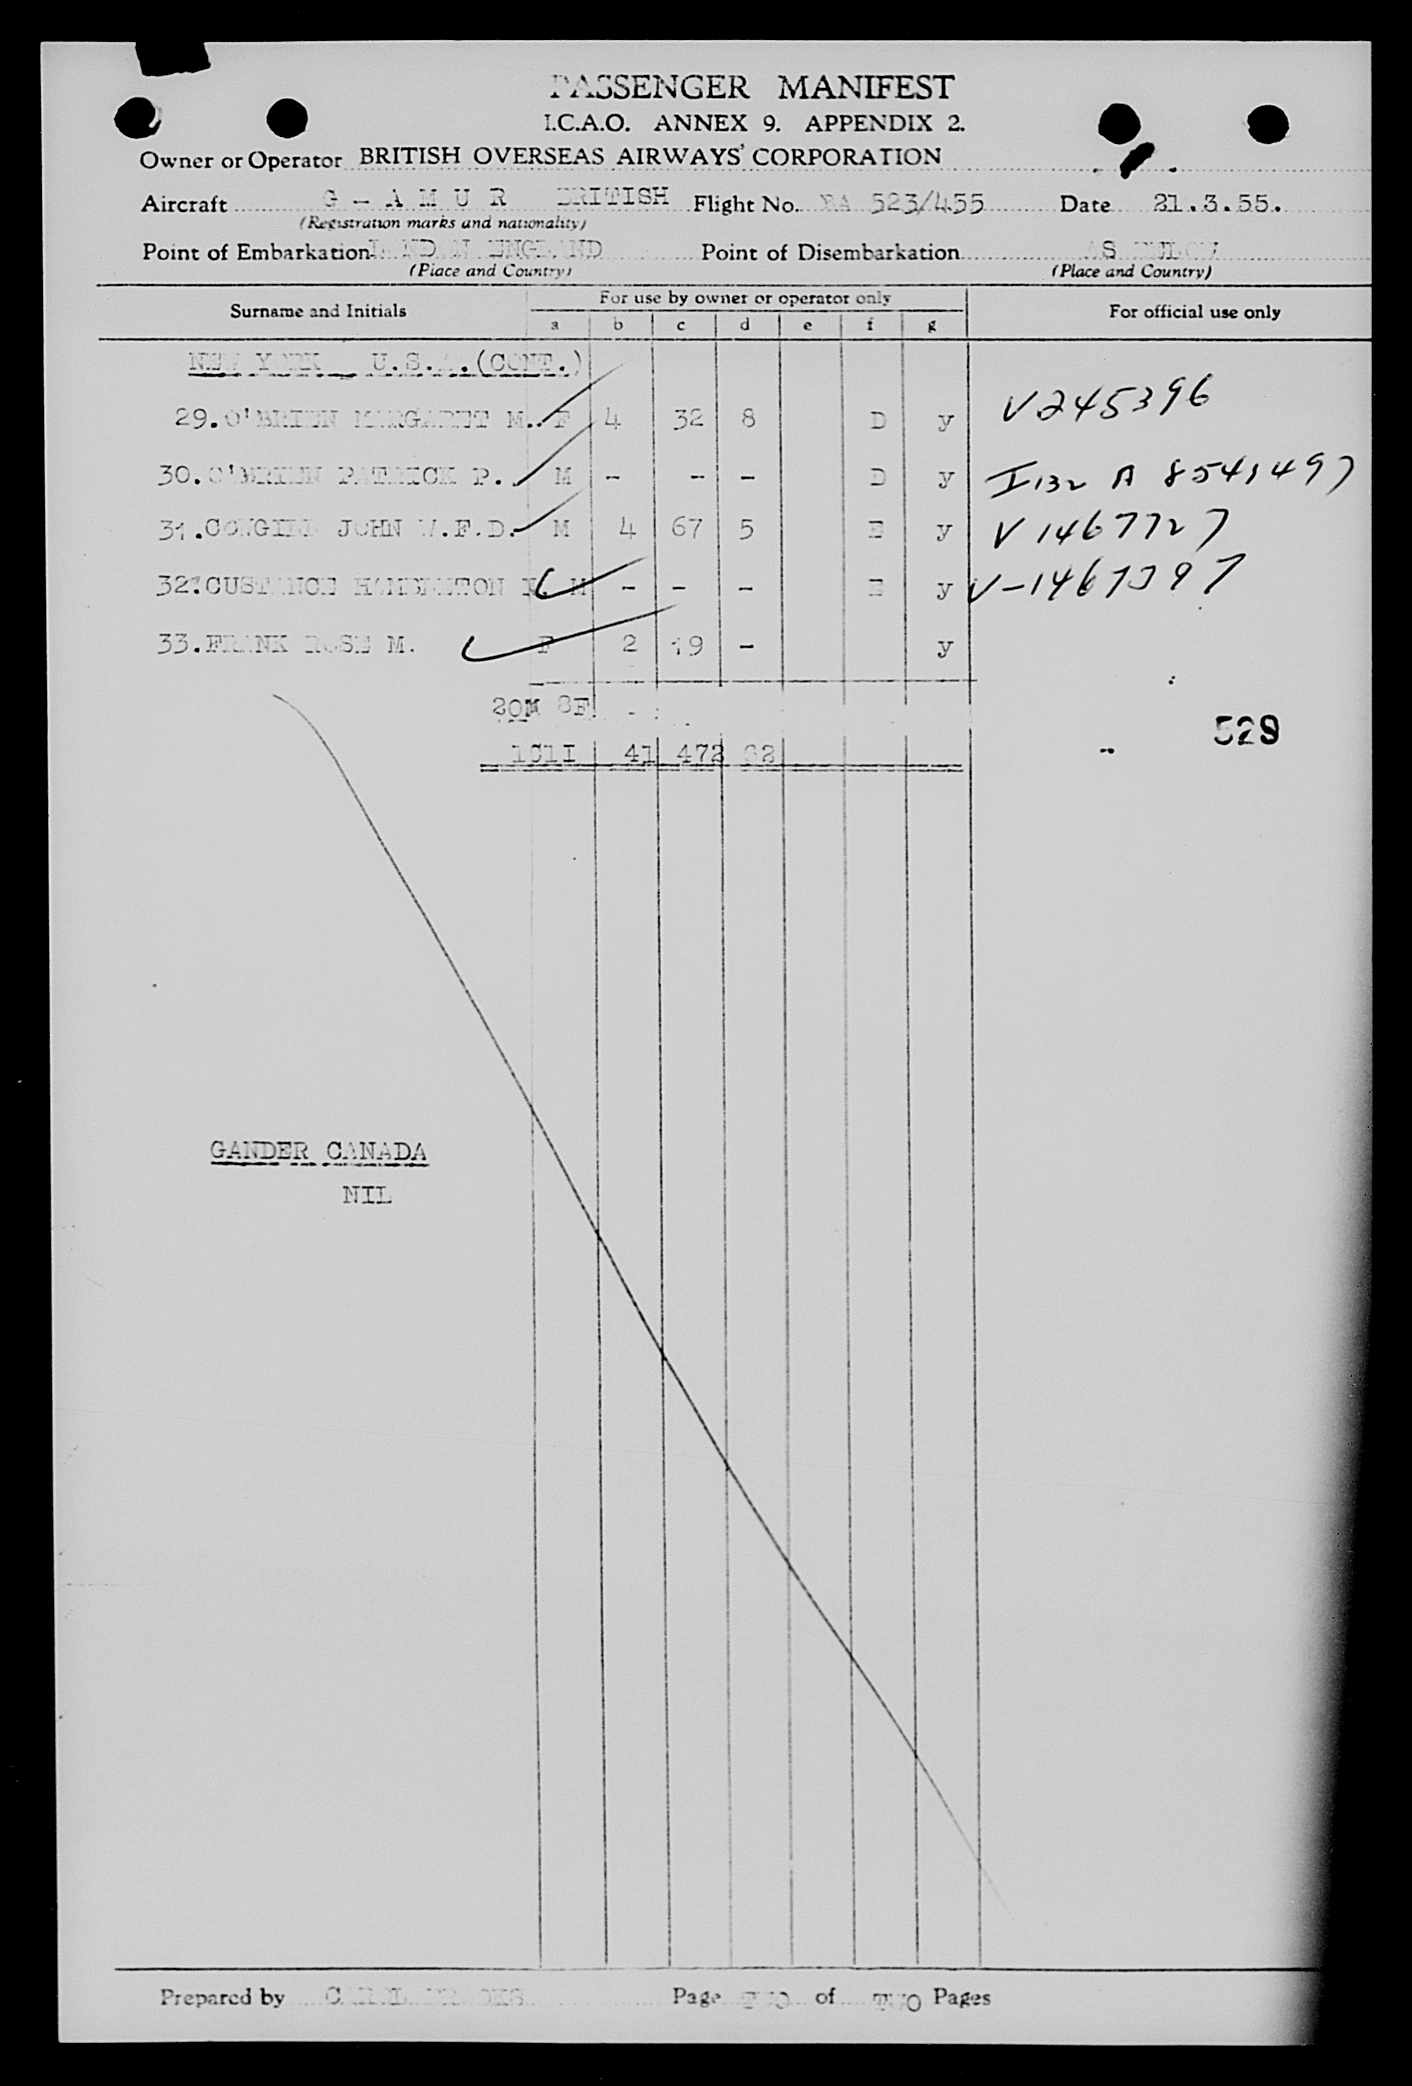 PASSENGER MANIFEST
I.C.A.O. ANNEX 9. APPENDIX 2.
Owner or Operator BRITISH OVERSEAS AIRWAYS CORPORATION
Aircraft G - A M U R BRITISH Flight No. BA 523/455 Date 21.3.55.
(Registration marks and nationality)
Point of Embarkation LONDON ENGLAND Point of Disembarkation AS BELOW
(Place and Country) (Place and Country)
Surname and Initials For use by owner or operator only For official use only
a b c d e f g
NEW YORK U.S.A.(CONT.)
29.O'BRIEN MARGARET M. F 4 32 8 D y V245396
30.O'BRIEN PATRICK P. M - - - D y I132 A 8541497
31.COWGILL JOHN W.F.D. M 4 67 5 E y V 1467727
32.CUSTANCE HAMBLETON M - - - E y V-1467797
33.FRANK ROSE M. F 2 19 - y
20M 8F
529
1C1I 41 472 82
GANDER CANADA
NIL
Prepared by CAROL Page TWO of TWO Pages